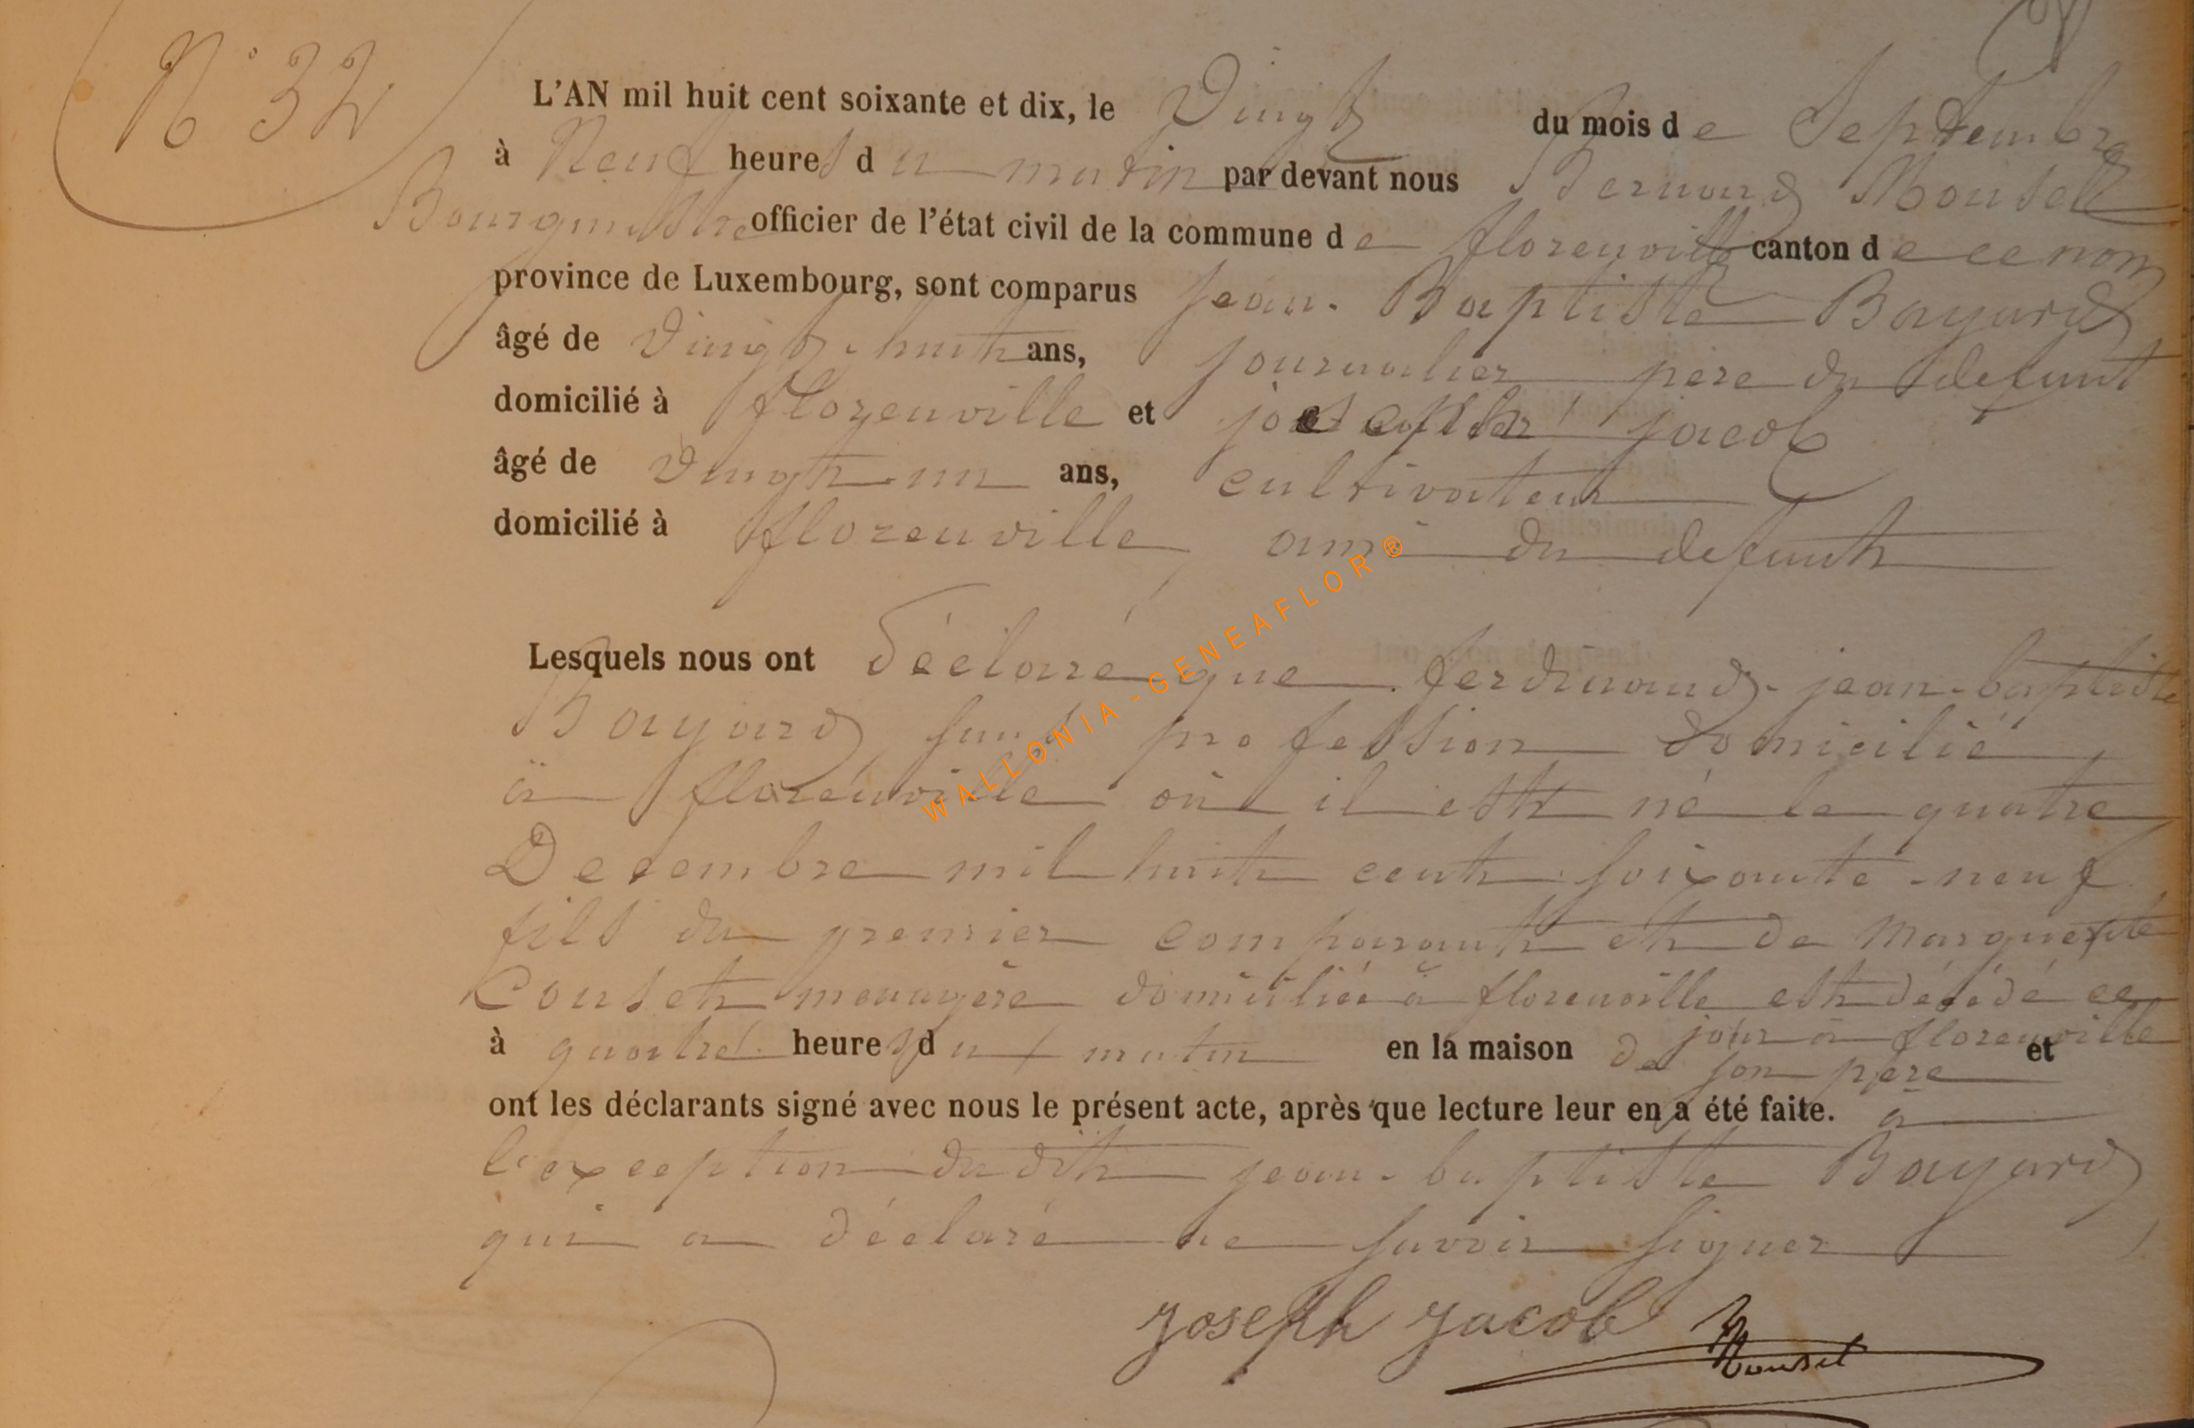 N° 32
L'AN mil huit cent soixante et dix, le Vingt du mois de Septembre
à Neuf heures du matin par devant nous Bernard Mousel
Bourgmestre officier de l'état civil de la commune de florenville canton de ce nom
province de Luxembourg, sont comparus Jean-Baptiste Bayard
âgé de Vingt-huit ans, journalier pere du defunt
domicilié à florenville et joseph jacob
âgé de Vingt-un ans, cultivateur
domicilié à florenville, ami du defunt
Lesquels nous ont déclaré que ferdinand-jean-baptiste
Bayard, sans profession domicilié
à florenville où il est né le quatre
Decembre mil huit cent soixante-neuf
fils du premier comparant et de Marguerite
menagère domiciliée à florenville est décédé ce
jour à florenville
à quatre heures du matin en la maison de son père et
ont les déclarants signé avec nous le présent acte, après que lecture leur en a été faite. à
l'exception dudit jean-baptiste Bayard
qui a déclaré ne savoir signer
Joseph Jacob
WALLONIA-GENEAFLOR®